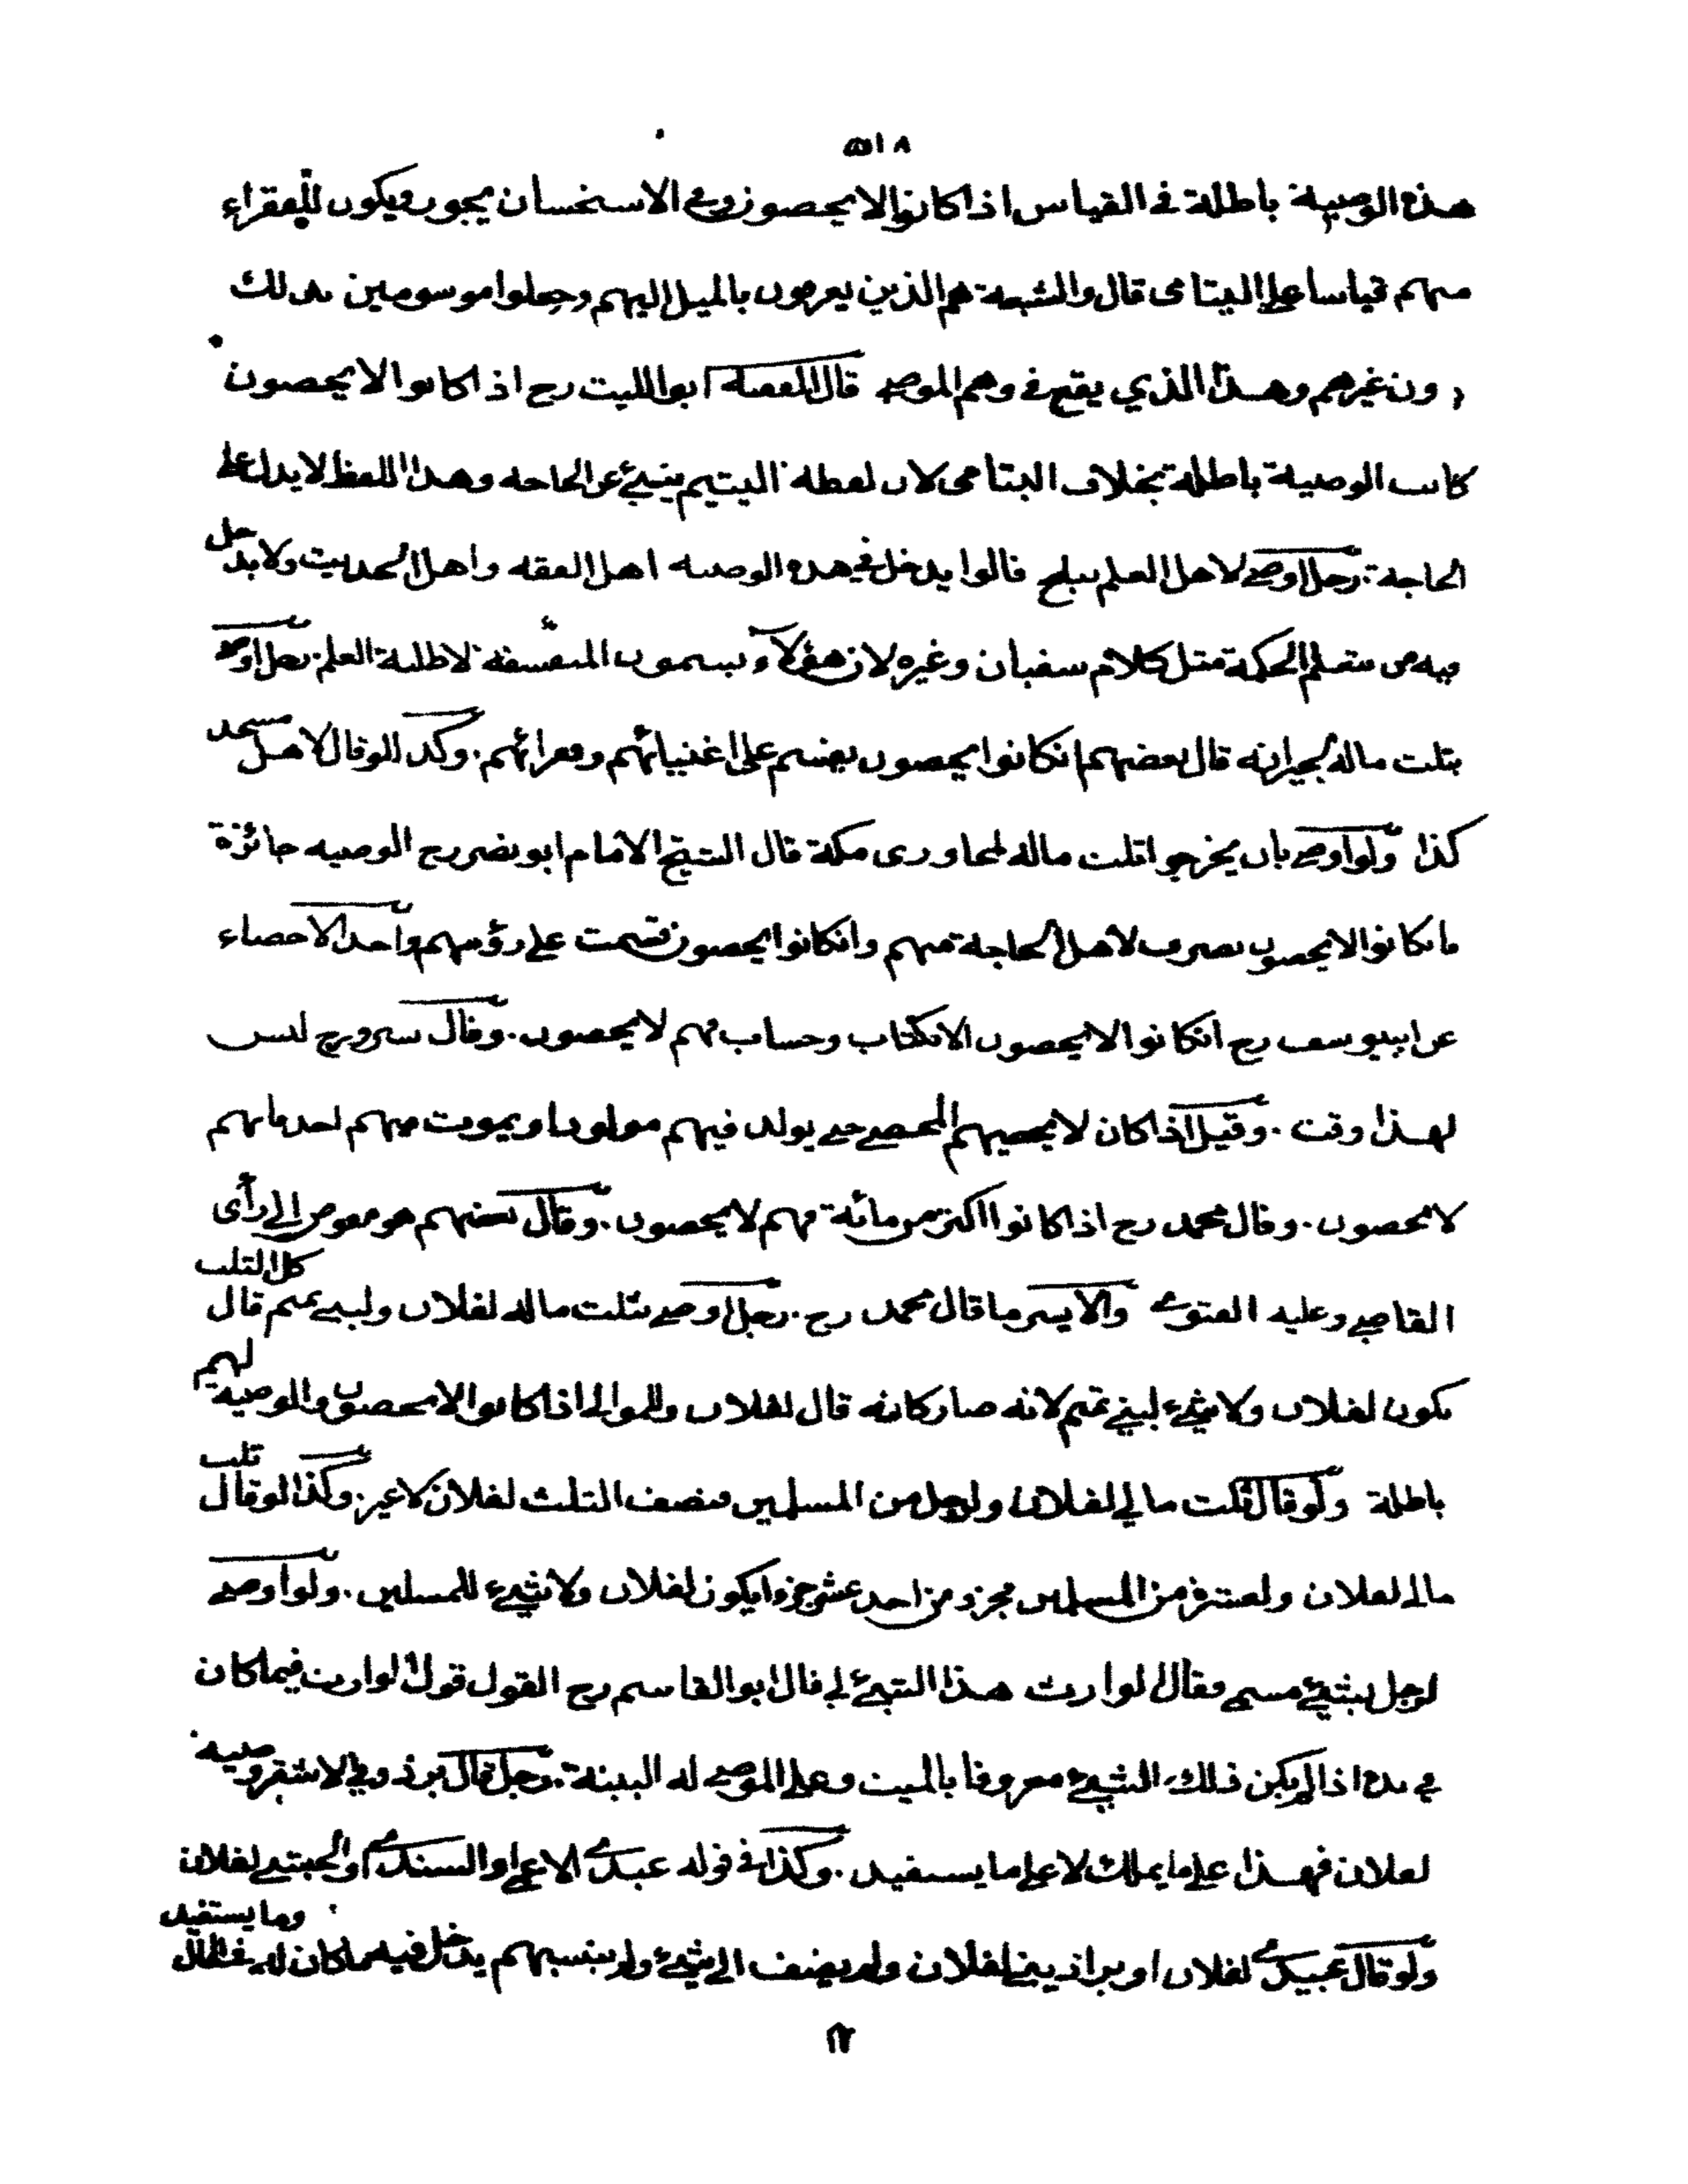 ٥١٨
هذه الوصية باطلة في القياس اذا كانوا لا يحصون وفي الاستحسان يجوز ويكون للفقراء
منهم قياسا على اليتامى قال والشيعة هم الذين يعرفون بالميل اليهم وجعلوا موسومين بذلك
دون غيرهم وهذا الذي يقع في وهم الموصي قال الفقيه ابو الليث رح اذا كانوا لا يحصون
كانت الوصية باطلة بخلاف اليتامى لان لفظة اليتيم ينبئ عن الحاجة وهذا اللفظ لا يدل على
الحاجة. رجل اوصى لاهل العلم ببلخ قالوا يدخل في هذه الوصية اهل الفقه واهل الحديث ولا يدخل
فيه من يتعلم الحكمة مثل كلام سفيان وغيره لان هؤلاء يسمون المتفلسفة لا طلبة العلم. رجل اوصى
بثلث ماله لجيرانه قال بعضهم ان كانوا يحصون يقسم على اغنيائهم وفقرائهم. وكذا لو قال لاهل مسجد
كذا ولو اوصى بان يخرجوا ثلث ماله لمجاوري مكة قال الشيخ الامام ابو نصر رح الوصية جائزة
ما كانوا لا يحصون يصرف لاهل الحاجة منهم وان كانوا يحصون قسمت على رؤسهم واحد الاحصاء
عن ابي يوسف رح ان كانوا لا يحصون الا بكتاب وحساب فهم لا يحصون. وقال ليس
لهذا وقت. وقيل اذا كان لا يحصيهم المحصي حتى يولد فيهم مولود او يموت منهم احد فانهم
لا يحصون. وقال محمد رح اذا كانوا اكثر من مائة فهم لا يحصون. وقال بعضهم هو مفوض الى رأى
القاضي وعليه الفتوى والايسر ما قال محمد رح. رجل اوصى بثلث ماله لفلان ولبني تميم قال كل الثلث
يكون لفلان ولا شيء لبني تميم لانه صار كانه قال لفلان وللموالي اذا كانوا لا يحصون والوصية لهم
باطلة ولو قال ثلث مالي لفلان ولرجل من المسلمين فنصف الثلث لفلان لا غير. وكذا لو قال ثلث
مالي لفلان ولعشرة من المسلمين فجزء من احد عشر جزءا يكون لفلان ولا شيء للمسلمين. ولو اوصى
لرجل بشيء مسمى فقال لوارث هذا الشيء لي قال ابو القاسم رح القول قول الوارث فيما كان
في يده اذا لم يكن ذلك الشيء معروفا بالميت وعلى الموصى له البينة. رجل قال وصية
لفلان فهذا على ما يملك لا على ما يستفيد. وكذا في قوله عبدي الاعمى او السندي او الحبشي لفلان
ولو قال عبيدي لفلان او براذيني لفلان ولم يضف الى شيء ولم ينسبهم يدخل فيه ما كان له في الحال وما يستفيد